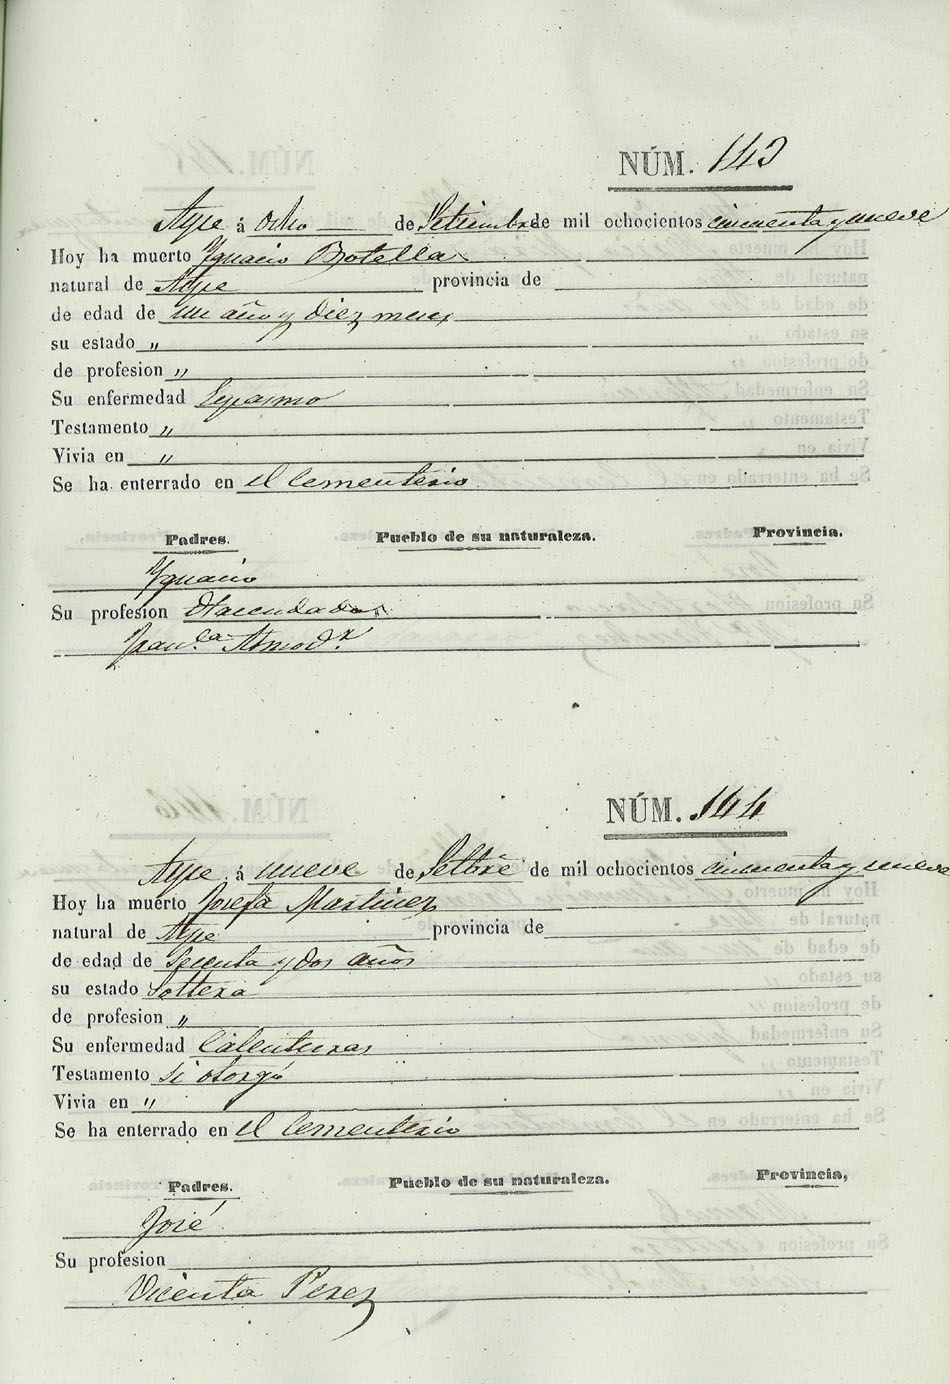 NÚM. 143
Aspe á ocho de Setiembre de mil ochocientos cincuenta y nueve
Hoy ha muerto Ygnacio Botella
natural de Aspe provincia de
de edad de un año y diez meses
su estado "
de profesion "
Su enfermedad Espasmo
Testamento "
Vivia en "
Se ha enterrado en el Cementerio
Padres. Pueblo de su naturaleza. Provincia.
Ygnacio
Su profesion Hacendados
Fran.ca Almod.r
NÚM. 144
Aspe á nueve de Setbre de mil ochocientos cincuenta y nueve
Hoy ha muerto Josefa Martinez
natural de Aspe provincia de
de edad de y dos años
su estado Soltera
de profesion "
Su enfermedad Calenturas
Testamento si otorgó
Vivia en "
Se ha enterrado en el Cementerio
Padres. Pueblo de su naturaleza. Provincia,
José
Su profesion
Vicenta Perez